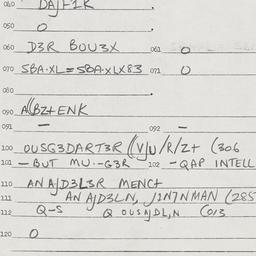 040 DAJF1K .
050 O .
060 D3R BOU3X 061 O
070 SBA·XL=SBA×LX83 071 O
080 .
090 A((BZ+ENK
091 – 092 –
100 OUSG3DART3R ((V)U/R/Z+ (306
101 –BUT MU·-G3R 102 -QAP INTELL
110 ANAJD3L3R MENC+
111 ANAJD3LN, J2N7NMAN (285
112 Q-S Q OUSAJDL,N (013
120 O